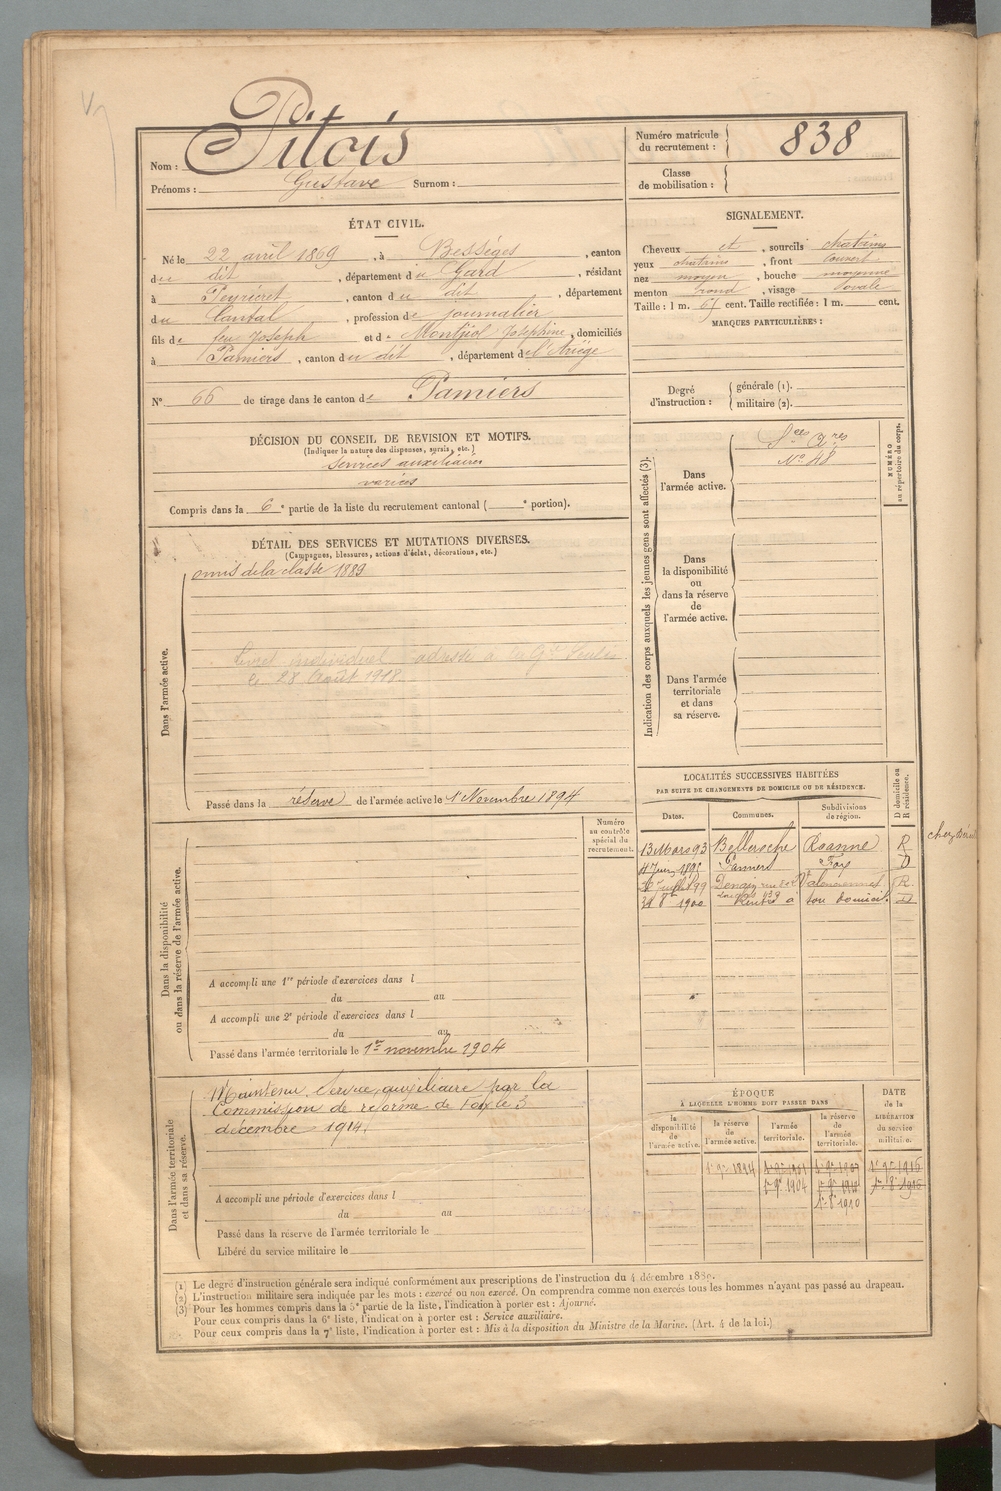 Nom : Pitois
Prénoms : Gustave Surnom :
Numéro matricule du recrutement : 838
Classe de mobilisation :
ÉTAT CIVIL.
Né le 22 avril 1869, à Bességes, canton
du dit, département du Gard, résidant
à, canton du dit, département
du Cantal, profession de journalier
fils de feu Joseph et de Josephine, domiciliés
à Pamiers, canton du dit, département de l'Ariège
N° 66 de tirage dans le canton de Pamiers
SIGNALEMENT.
Cheveux et, sourcils chatains
yeux chatains, front couvert
nez moyen, bouche moyenne
menton rond, visage ovale
Taille : 1 m. 67 cent. Taille rectifiée : 1 m. cent.
MARQUES PARTICULIÈRES :
Degré d'instruction :
générale (1).
militaire (2).
DÉCISION DU CONSEIL DE REVISION ET MOTIFS.
(Indiquer la nature des dispenses, sursis, etc.)
services auxiliaires
varices
Compris dans la 6e partie de la liste du recrutement cantonal ( e portion).
DÉTAIL DES SERVICES ET MUTATIONS DIVERSES.
(Campagnes, blessures, actions d'éclat, décorations, etc.)
Dans l'armée active.
omis de la classe 1889
Livret individuel adressé à
le 28 Août 1918
Passé dans la réserve de l'armée active le 1er Novembre 1894
Indication des corps auxquels les jeunes gens sont affectés (3).
NUMÉRO au répertoire du corps.
Dans l'armée active.
Sces Aires
N° 48
Dans la disponibilité ou dans la réserve de l'armée active.
Dans l'armée territoriale et dans sa réserve.
LOCALITÉS SUCCESSIVES HABITÉES
PAR SUITE DE CHANGEMENTS DE DOMICILE OU DE RÉSIDENCE.
D domicile ou R résidence.
Dates. Communes. Subdivisions de région.
13 Mars 93 Belleroche Roanne R
1895 Pamiers Foix D
Juillet 99 Denain Valenciennes R
1900 Rentré à son domicile D
Dans la disponibilité ou dans la réserve de l'armée active.
Numéro au contrôle spécial du recrutement.
A accompli une 1re période d'exercices dans l
du au
A accompli une 2e période d'exercices dans l
du au
Passé dans l'armée territoriale le 1er novembre 1904
Dans l'armée territoriale et dans sa réserve.
Maintenu Service auxiliaire par la
Commission de réforme de Foix le 3
décembre 1914.
A accompli une période d'exercices dans l
du au
Passé dans la réserve de l'armée territoriale le
Libéré du service militaire le
ÉPOQUE
À LAQUELLE L'HOMME DOIT PASSER DANS
DATE de la LIBÉRATION du service militaire.
la disponibilité de l'armée active.
la réserve de l'armée active.
l'armée territoriale.
la réserve de l'armée territoriale.
1er 9bre 1894
1er 9bre 1904
1er 8bre 1910
(1) Le degré d'instruction générale sera indiqué conformément aux prescriptions de l'instruction du 4 décembre 1889.
(2) L'instruction militaire sera indiquée par les mots : exercé ou non exercé. On comprendra comme non exercés tous les hommes n'ayant pas passé au drapeau.
(3) Pour les hommes compris dans la 5e partie de la liste, l'indication à porter est : Ajourné.
Pour ceux compris dans la 6e liste, l'indication à porter est : Service auxiliaire.
Pour ceux compris dans la 7e liste, l'indication à porter est : Mis à la disposition du Ministre de la Marine. (Art. 4 de la loi.)